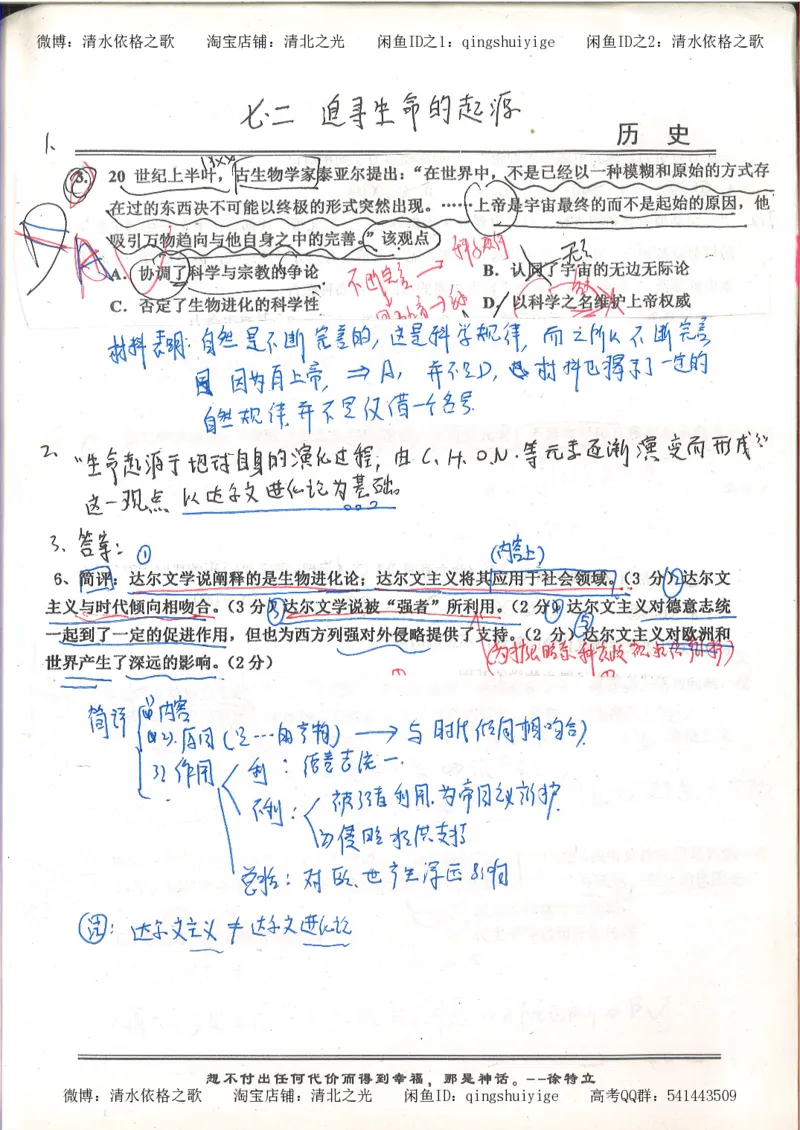 微博：清水依格之歌 淘宝店铺：清北之光 闲鱼ID之1：qingshuiyige 闲鱼ID之2：清水依格之歌
七.二 追寻生命的起源
历 史
1.
3. 20 世纪上半叶，古生物学家泰亚尔提出：“在世界中，不是已经以一种模糊和原始的方式存
在过的东西决不可能以终极的形式突然出现。……上帝是宇宙最终的而不是起始的原因，他
吸引万物趋向与他自身之中的完善。”该观点
A. 协调了科学与宗教的争论 B. 认同了宇宙的无边无际论
不断完善
C. 否定了生物进化的科学性 D. 以科学之名维护上帝权威
材料表明：自然是不断完善的，这是科学规律，而之所以不断完善
因为有上帝，⇒A，并不是D，材料也揭示了一定的
自然规律,并不是仅借一个名号.
2. “生命起源于地球自身的演化过程，由C.H.O.N.等元素逐渐演变而形成”
这一观点 以达尔文进化论为基础。
3. 答案：① (内容上)
6、简评：达尔文学说阐释的是生物进化论；达尔文主义将其应用于社会领域。（3 分）②达尔文
主义与时代倾向相吻合。（3 分）③达尔文学说被“强者”所利用。（2 分）④达尔文主义对德意志统
一起到了一定的促进作用，但也为西方列强对外侵略提供了支持。（2 分）⑤达尔文主义对欧洲和
世界产生了深远的影响。（2 分）
简评 (1)内容
(2).原因（是…的产物）→与时代倾向相吻合.
3)作用 利：德意志统一.
不利：被强者利用,为帝国主义辩护
为侵略提供支持
总括：对欧、世产生深远影响
注：达尔文主义≠达尔文进化论
想不付出任何代价而得到幸福，那是神话。--徐特立
微博：清水依格之歌 淘宝店铺：清北之光 闲鱼ID：qingshuiyige 高考QQ群：541443509